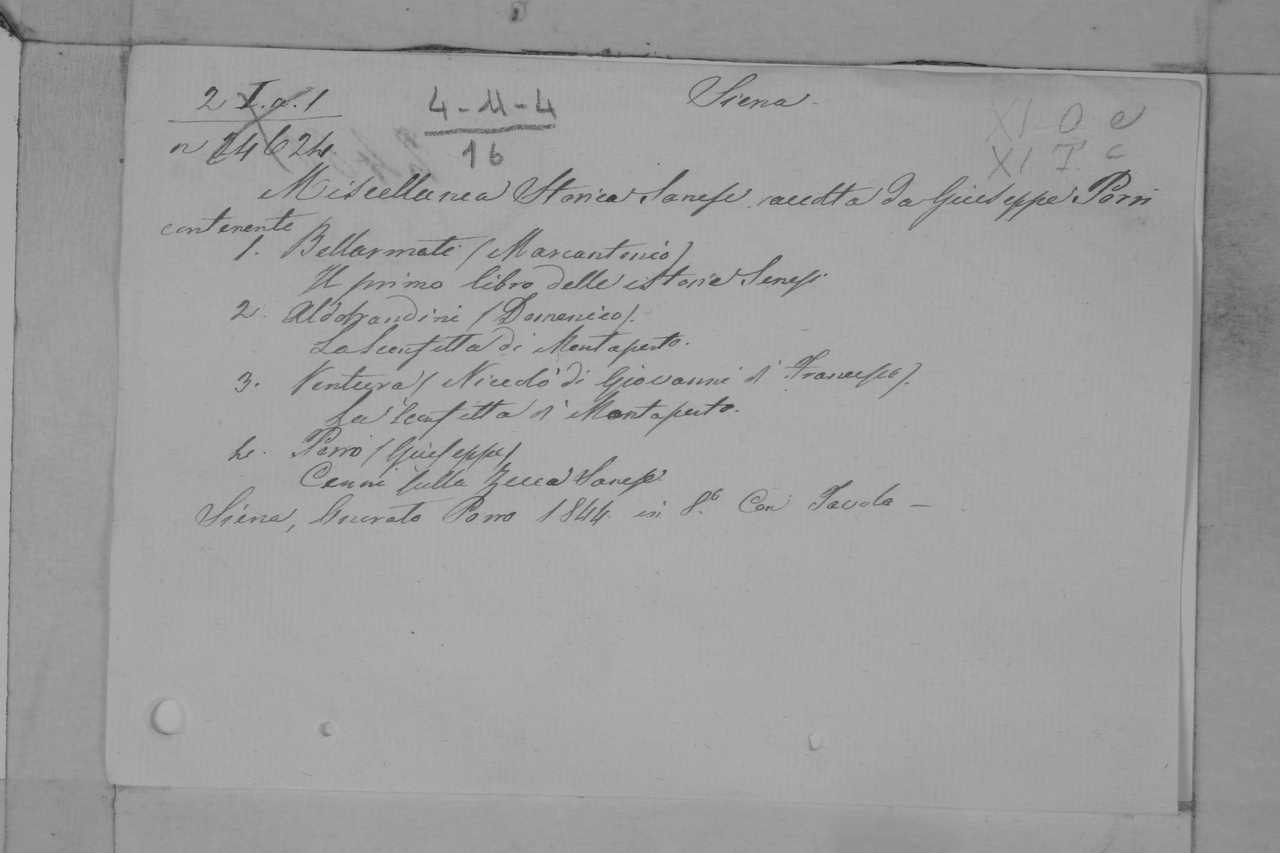 2 I.a.1
Siena -
4-11-4
XI O e
n 14624.
16
XI I c
Miscellanea Storica Sanese raccolta da Giuseppe Porri
contenente
1. Bellarmati (Marcantonio)
Il primo libro delle istorie Senesi
2. Aldobrandini (Domenico).
La Sconfitta di Montaperto.
3. Ventura (Niccolò di Giovanni di Francesco).
La Sconfitta di Montaperto.
4. Porri (Giuseppe)
Cenni sulla Zecca Sanese
Siena, Onorato Porri 1844. in 8.º Con Tavola -